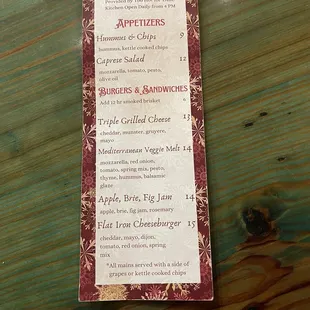 Kitchen Open Daily from 4 PM
APPETIZERS
Hummus & Chips 9
hummus, kettle cooked chips
Caprese Salad 12
mozzarella, tomato, pesto,
olive oil
BURGERS & SANDWICHES
Add 12 hr smoked brisket 6
Triple Grilled Cheese 13
cheddar, munster, gruyere,
mayo
Mediterranean Veggie Melt 14
mozzarella, red onion,
tomato, spring mix, pesto,
thyme, hummus, balsamic
glaze
Apple, Brie, Fig Jam 14
apple, brie, fig jam, rosemary
Flat Iron Cheeseburger 15
cheddar, mayo, dijon,
tomato, red onion, spring
mix
*All mains served with a side of
grapes or kettle cooked chips